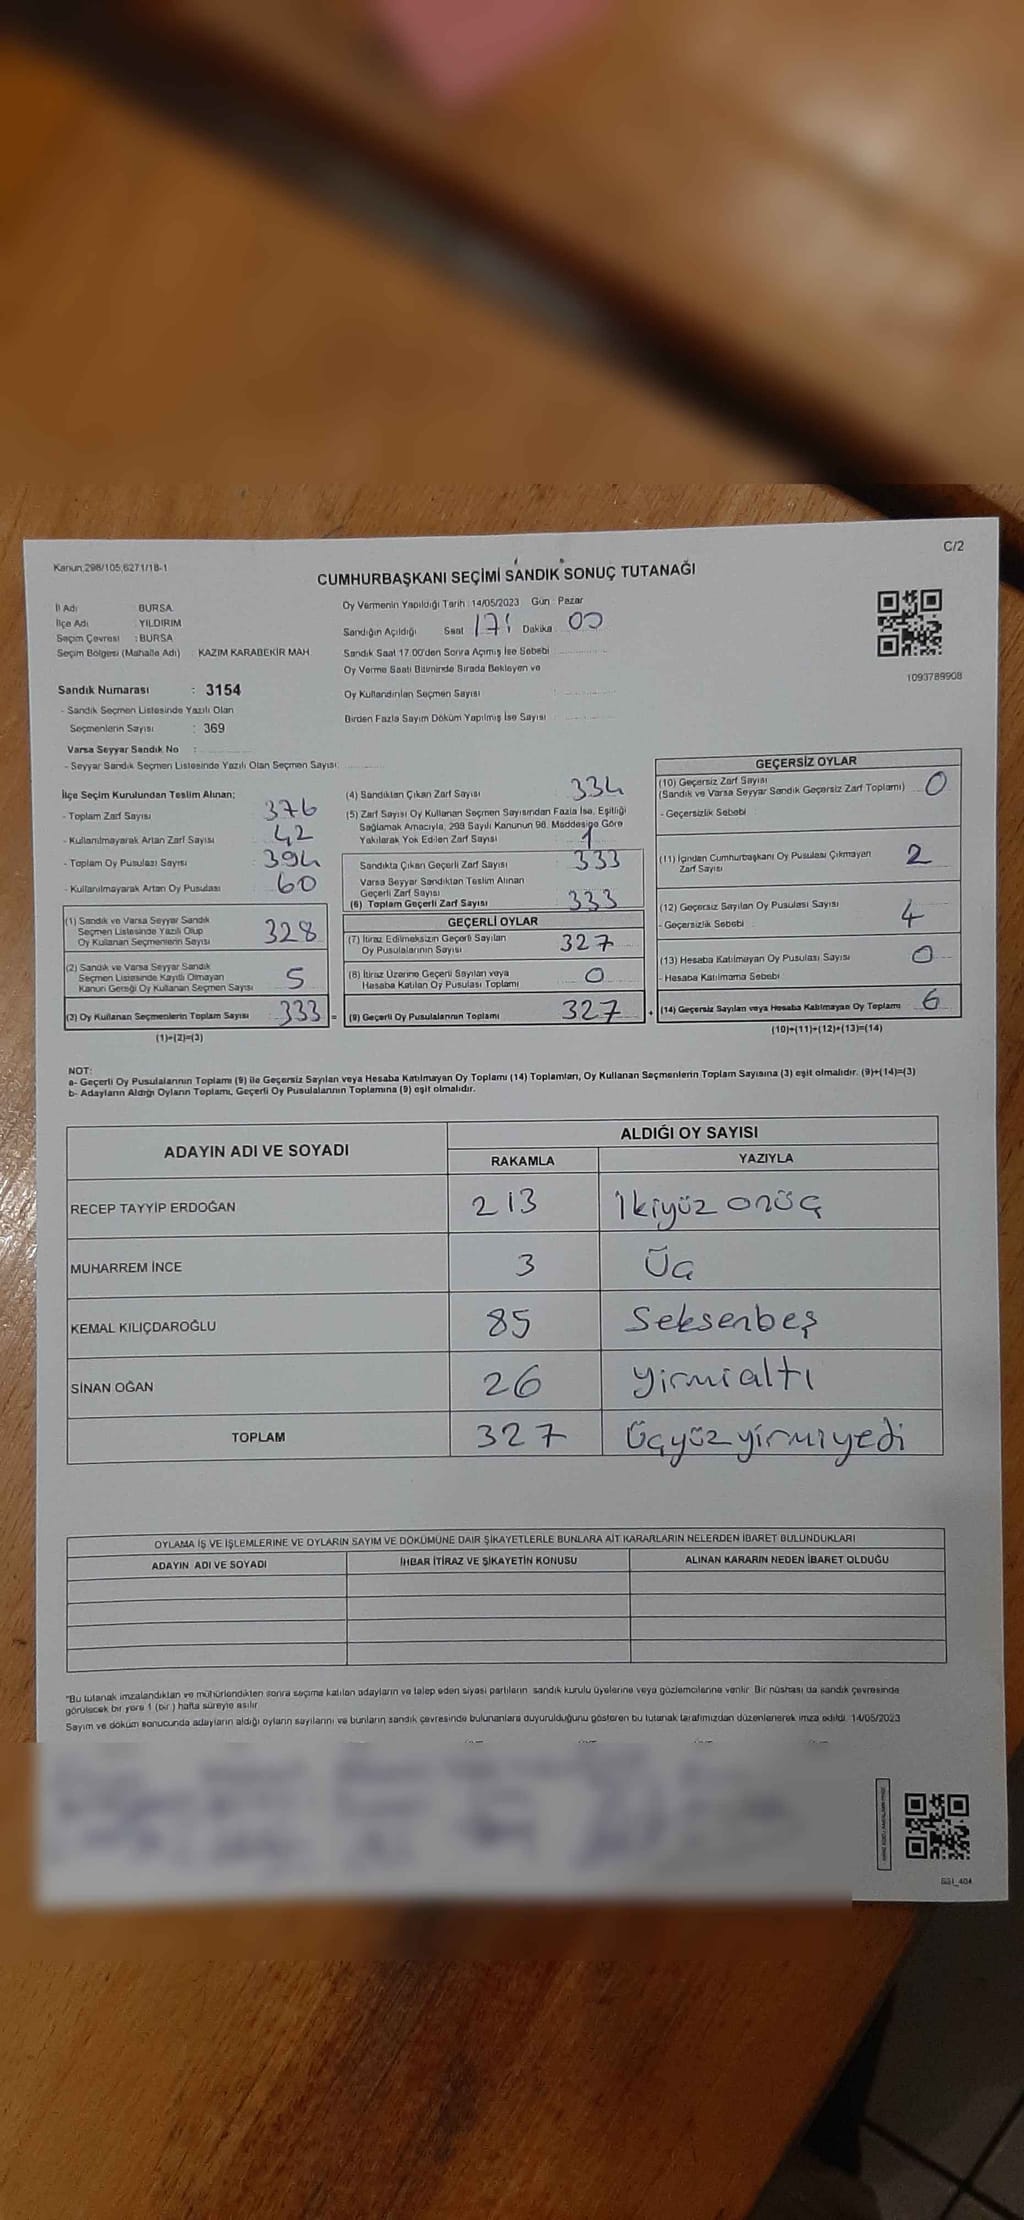 Kanun,298/105,6271/18-1
C/2
CUMHURBAŞKANI SEÇİMİ SANDIK SONUÇ TUTANAĞI
İl Adı : BURSA
İlçe Adı : YILDIRIM
Seçim Çevresi : BURSA
Seçim Bölgesi (Mahalle Adı) : KAZIM KARABEKİR MAH.
Sandık Numarası : 3154
- Sandık Seçmen Listesinde Yazılı Olan
Seçmenlerin Sayısı : 369
Varsa Seyyar Sandık No :
- Seyyar Sandık Seçmen Listesinde Yazılı Olan Seçmen Sayısı:
Oy Vermenin Yapıldığı Tarih : 14/05/2023 Gün : Pazar
Sandığın Açıldığı Saat 17: Dakika 00
Sandık Saat 17.00'den Sonra Açımış İse Sebebi
Oy Verme Saati Bitiminde Sırada Bekleyen ve
Oy Kullandırılan Seçmen Sayısı :
Birden Fazla Sayım Döküm Yapılmış İse Sayısı :
1093789908
İlçe Seçim Kurulundan Teslim Alınan;
- Toplam Zarf Sayısı : 376
- Kullanılmayarak Artan Zarf Sayısı : 42
- Toplam Oy Pusulası Sayısı : 394
- Kullanılmayarak Artan Oy Pusulası : 60
(1) Sandık ve Varsa Seyyar Sandık
Seçmen Listesinde Yazılı Olup
Oy Kullanan Seçmenlerin Sayısı 328
(2) Sandık ve Varsa Seyyar Sandık
Seçmen Listesinde Kayıtlı Olmayan
Kanun Gereği Oy Kullanan Seçmen Sayısı 5
(3) Oy Kullanan Seçmenlerin Toplam Sayısı 333 =
(1)+(2)=(3)
(4) Sandıktan Çıkan Zarf Sayısı : 334
(5) Zarf Sayısı Oy Kullanan Seçmen Sayısından Fazla İse, Eşitliği
Sağlamak Amacıyla, 298 Sayılı Kanunun 98. Maddesine Göre
Yakılarak Yok Edilen Zarf Sayısı : 1
Sandıkta Çıkan Geçerli Zarf Sayısı : 333
Varsa Seyyar Sandıktan Teslim Alınan
Geçerli Zarf Sayısı
(6) Toplam Geçerli Zarf Sayısı : 333
GEÇERLİ OYLAR
(7) İtiraz Edilmeksizin Geçerli Sayılan
Oy Pusulalarının Sayısı 327
(8) İtiraz Üzerine Geçerli Sayılan veya
Hesaba Katılan Oy Pusulası Toplamı 0
(9) Geçerli Oy Pusulalarının Toplamı 327 +
GEÇERSİZ OYLAR
(10) Geçersiz Zarf Sayısı
(Sandık ve Varsa Seyyar Sandık Geçersiz Zarf Toplamı) 0
- Geçersizlik Sebebi
(11) İçinden Cumhurbaşkanı Oy Pusulası Çıkmayan
Zarf Sayısı 2
(12) Geçersiz Sayılan Oy Pusulası Sayısı 4
- Geçersizlik Sebebi
(13) Hesaba Katılmayan Oy Pusulası Sayısı 0
- Hesaba Katılmama Sebebi
(14) Geçersiz Sayılan veya Hesaba Katılmayan Oy Toplamı 6
(10)+(11)+(12)+(13)=(14)
NOT:
a- Geçerli Oy Pusulalarının Toplamı (9) ile Geçersiz Sayılan veya Hesaba Katılmayan Oy Toplamı (14) Toplamları, Oy Kullanan Seçmenlerin Toplam Sayısına (3) eşit olmalıdır. (9)+(14)=(3)
b- Adayların Aldığı Oyların Toplamı, Geçerli Oy Pusulalarının Toplamına (9) eşit olmalıdır.
ADAYIN ADI VE SOYADI ALDIĞI OY SAYISI
RAKAMLA YAZIYLA
RECEP TAYYİP ERDOĞAN 213 İkiyüz onüç
MUHARREM İNCE 3 Üç
KEMAL KILIÇDAROĞLU 85 Seksenbeş
SİNAN OĞAN 26 Yirmialtı
TOPLAM 327 Üçyüzyirmiyedi
OYLAMA İŞ VE İŞLEMLERİNE VE OYLARIN SAYIM VE DÖKÜMÜNE DAİR ŞİKAYETLERLE BUNLARA AİT KARARLARIN NELERDEN İBARET BULUNDUKLARI
ADAYIN ADI VE SOYADI İHBAR İTİRAZ VE ŞİKAYETİN KONUSU ALINAN KARARIN NEDEN İBARET OLDUĞU
"Bu tutanak imzalandıktan ve mühürlendikten sonra seçime katılan adayların ve talep eden siyasi partilerin sandık kurulu üyelerine veya gözlemcilerine verilir. Bir nüshası da sandık çevresinde
görülecek bir yere 1 (bir ) hafta süreyle asılır.
Sayım ve döküm sonucunda adayların aldığı oyların sayılarını ve bunların sandık çevresinde bulunanlara duyurulduğunu gösteren bu tutanak tarafımızdan düzenlenerek imza edildi. 14/05/2023